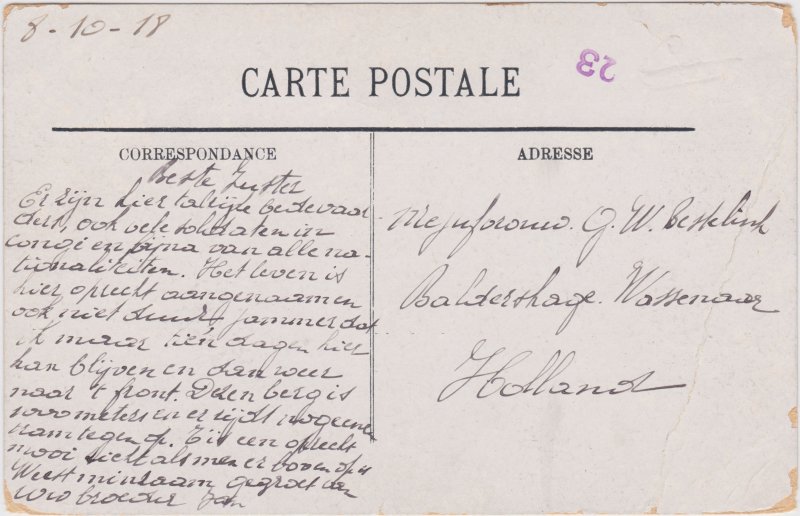 8-10-18
23
CARTE POSTALE
CORRESPONDANCE
Beste Zuster
Er zijn hier talrijke bedevaar
ders, ook vele soldaten in
congé en byna van alle na-
tionaliteiten. Het leven is
hier oprecht aangenaam en
ook niet duur, jammer dat
ik maar tien dagen hier
kan blijven en dan weer
naar 't front. Dezen berg is
meters en er rijdt nog eenen
tram tegen op. 't is een oprecht
mooi zicht als men er boven op is
Weest minzaam gegroet van
uw broeder Jan
ADRESSE
Mejufvrouw. G. W. Besselink
Baldershage. Wassenaar
Holland